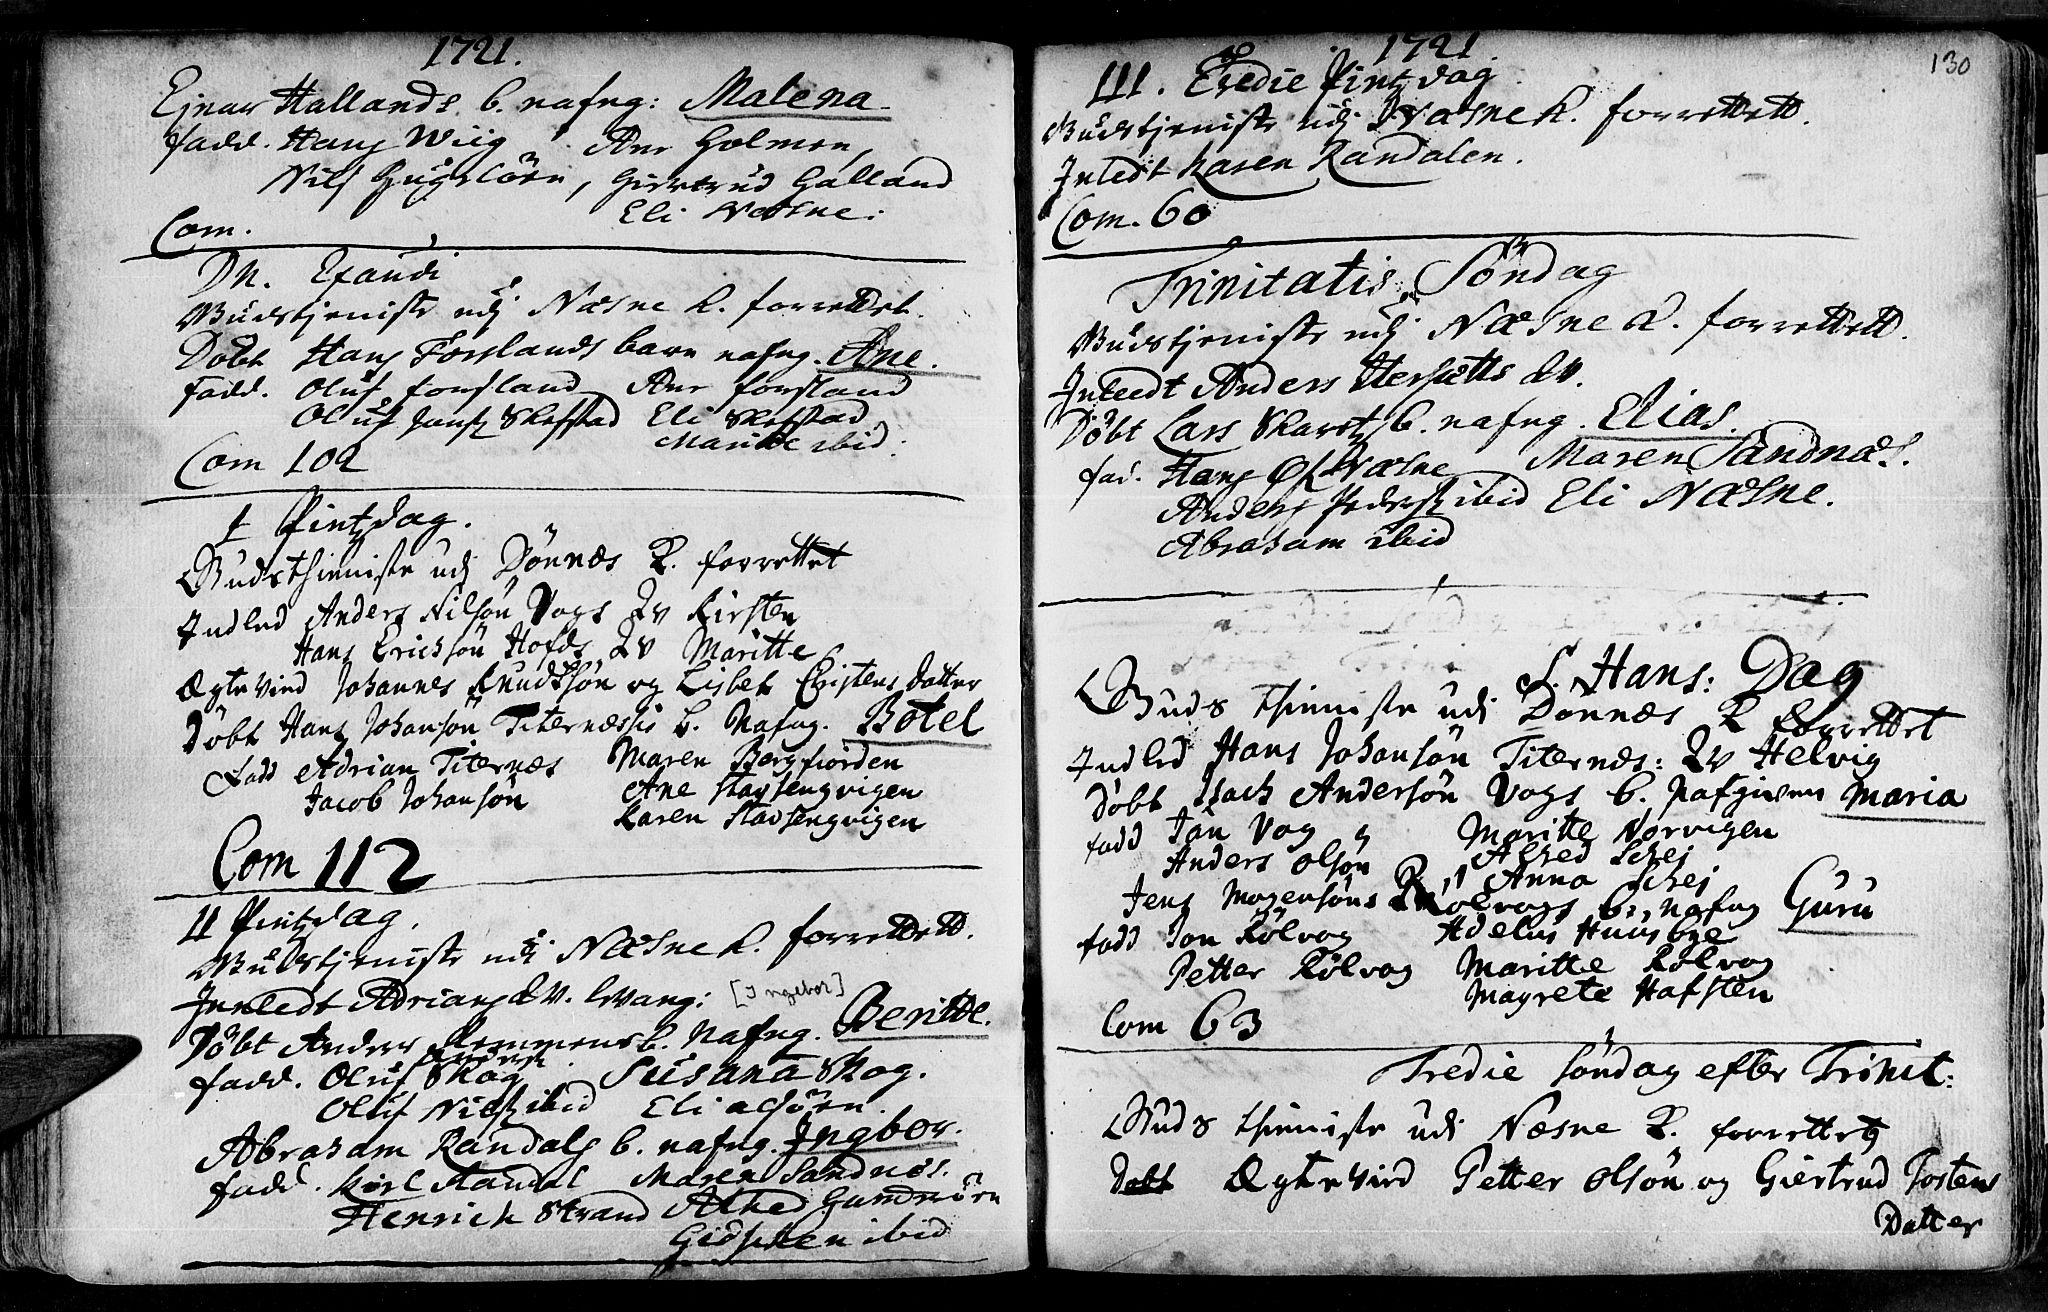 1721.
Ejnar Hallands b. nafng: Malena
fadd. Hans Wiig Ane Holmen,
Nils, Giertrud Halland
Eli Næsne.
Com.
Dn. Exaudi
Gudstjeniste udj Næsne K. forrettet.
Döbt Hans Forslands barn nafng. Ane.
fadd. Oluf forsland Ane forsland
Oluf Jans Skefstad Eli Skefstad
Maritte ibid.
Com 102
I Pintzdag.
Guds thieniste udj Dönnæs K. forrettet
Indled Anders Nilsön Vogs Qv Kirsten
Hans Ericksön Hofds Qv Maritte
Ægte vied Johannes Knudtsön og Lisbet Christens datter
Döbt Hans Johansön Titernæssis b. Nafng. Botel
Fadd Adrian Titernæs Maren Bergfiorden
Jacob Johansön Ane Stavsengvigen
Karen Stavsengvigen
Com 112
II Pintzdag.
Gudstjeniste udj Næsne K. forrettett.
Inledt Adrians qv. Levang: [Ingebor]
Döbt Anders Remmens b. Nafng. Beritte.
fadd. Oluf Skog Susana Skog.
Oluf Nils ibid Eli
Abraham Randals b. nafng. Ingbor.
fadd. Karl Randal Maren Sandnæs.
Henrich Strand Alhed
ibid
1721
130
III. Tredie Pintzdag
Gudstjeniste udj Næsne K. forrettett.
Inledt Karen Randalen.
Com. 60
Trinitatis Söndag
Gudstjeniste udj Næsne K. forrettett.
Inledt Anders Hersetts qv.
Döbt Lars b. nafng. Elias.
fad. Hans Næsne Maren Sandnæs.
Anders Peders ibid Eli Næsne.
Abraham ibid
S. Hans: Dag
Guds thieniste udj Dönnæs K forrettet
Indled Hans Johansön Titernæs: Qv Helvig
Döbt Isach Andersön Vogs b. Nafgiven Maria
fadd Jan Vog Maritte Norvigen
Anders Olsön Alhed Skej
Anna Skej
Jens Mogensöns Rölvogs b. Nafng Guru
fadd Jon Rölvog Adelus Huusbye
Petter Rölvog Maritte Rölvog
Magrete Hafsten
Com 63
Tredie Söndag efter Trinit:
Guds thieniste udi Næsne K. forrettet
Döbt Ægte vied Petter Olsön og Giertrud Tostens
Datter